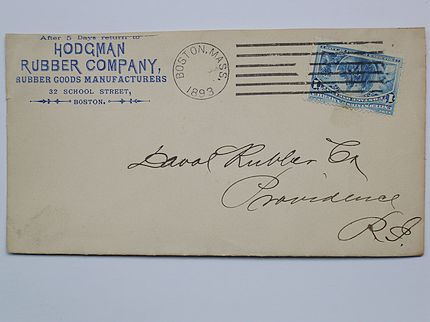 After 5 Days return to
HODGMAN
RUBBER COMPANY,
RUBBER GOODS MANUFACTURERS
32 SCHOOL STREET,
BOSTON.
BOSTON, MASS.
1893
Davol Rubber Co
Providence
R.I.